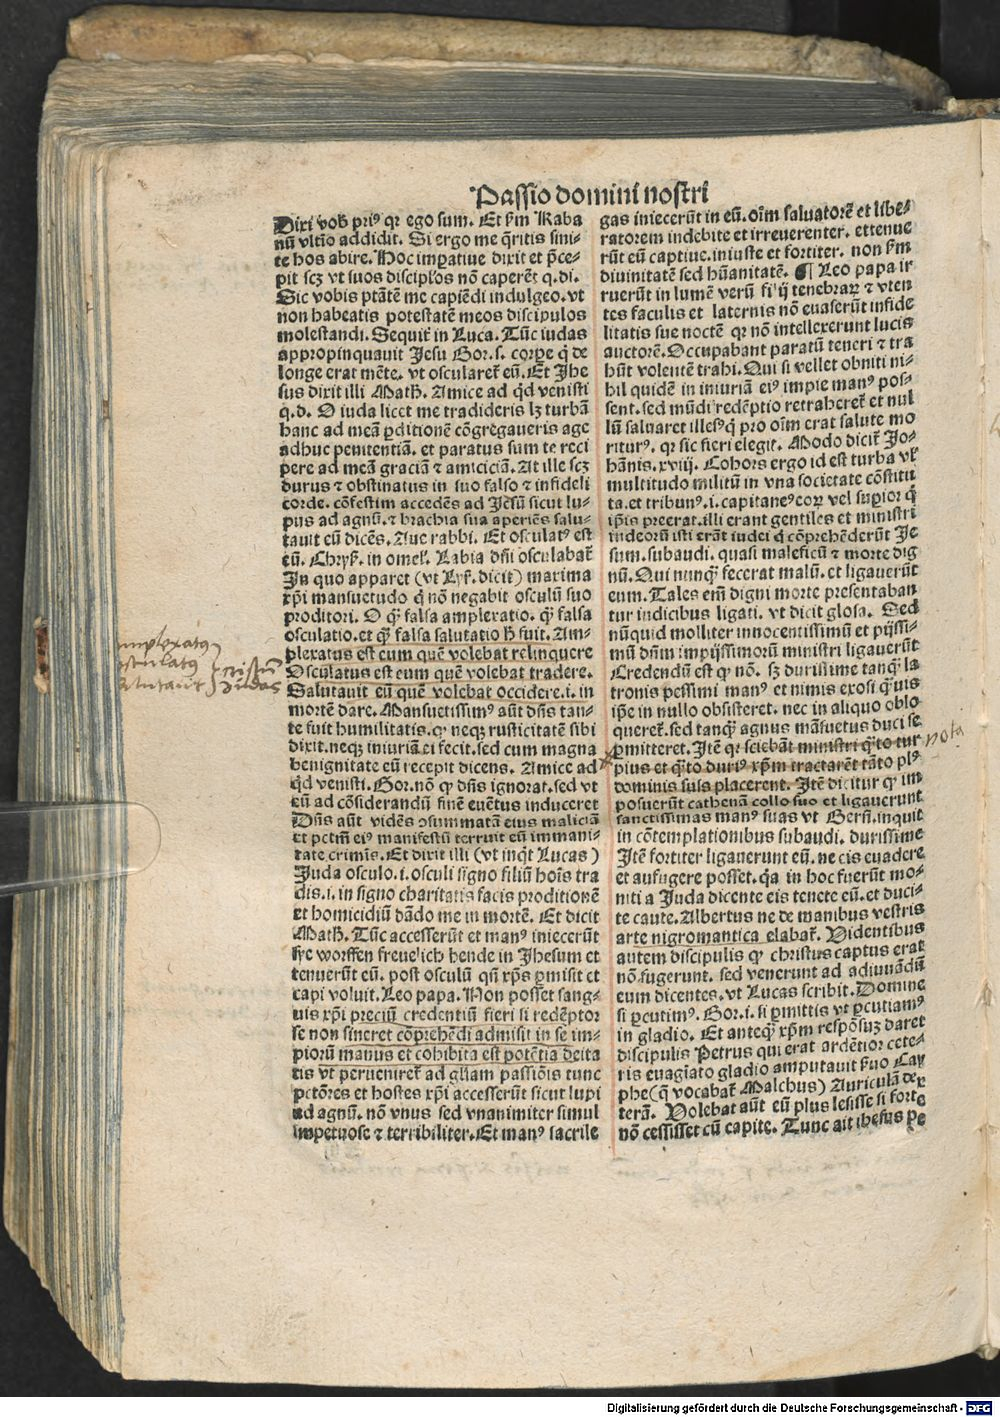 Passio domini nostri
Dixi vob̃ priꝰ qꝛ ego sum. Et ẜm Raba
nũ vltĩo addidit. Si ergo me q̃ritis sini⸗
te hos abire. Hoc imꝑatiue dixit et p̃ce⸗
pit scꝫ vt suos discip̃los nõ caperẽt q.di.
Sic vobis ptãtẽ me capiẽdi indulgeo. vt
non habeatis potestatẽ meos discipulos
molestandi. Sequit̃ in Luca. Tũc iudas
appropinquauit Jesu Gor. s. corꝑe q̃ de
longe erat mẽte. vt oscularet̃ eũ. Et Jhe
sus dixit illi Math̃. Amice ad qd̃ venisti
q.d. O iuda licet me tradideris lꝫ turbã
hanc ad meã ꝑditionẽ cõgregaueris age
adhuc penitentiã. et paratus sum te reci
pere ad meã graciã ⁊ amiciciã. At ille scꝫ
durus ⁊ obstinatus in suo falso ⁊ infideli
corde. cõfestim accedẽs ad Jesũ sicut lu⸗
pus ad agnũ. ⁊ brachia sua aperiẽs salu⸗
tauit eũ dicẽs. Aue rabbi. Et osculatꝰ est
eũ. Chryſ. in omel̃. Labia dñi osculabat̃
In quo apparet (vt Lyr̃. dicit) maxima
xp̃i mansuetudo q̃ nõ negabit osculũ suo
proditori. O q̃ꝫ falsa amplexatio. q̃ꝫ falsa
osculatio. et q̃ꝫ falsa salutatio h̃ fuit. Am⸗
plexatus est eum quẽ volebat relinquere
Osculatus est eum quẽ volebat tradere.
Salutauit eũ quẽ volebat occidere. i. in
mortẽ dare. Mansuetissimꝰ aũt dñs tan⸗
te fuit humilitatis. ꝙ neqꝫ rusticitatẽ sibi
dixit. neqꝫ iniuriã ei fecit. sed cum magna
benignitate eũ recepit dicens. Amice ad
qd̃ venisti. Gor. nõ ꝙ dñs ignorat. sed vt
eũ ad cõsiderandũ finẽ euẽtus induceret
Dñs aũt vidẽs ↄsummatã eius maliciã
et pctm̃ eiꝰ manifestũ terruit eũ immani⸗
tate crimĩs. Et dixit illi (vt inqͥt Lucas)
Juda osculo. i. osculi signo filiũ hoĩs tra
dis. i. in signo charitatis facis proditionẽ
et homicidiũ dãdo me in mortẽ. Et dicit
Math̃. Tũc accesserũt et manꝰ iniecerũt
sye worffen freuelich hende in Jhesum et
tenuerũt eũ. post osculũ qñ xp̃s ꝑmisit et
capi voluit. Leo papa. Non posset sang⸗
uis xp̃i preciũ credentiũ fieri si redẽptor
se non sineret cõprehẽdi admisit in se im⸗
piorũ manus et cohibita est potẽtia deita
tis vt perueniret̃ ad gl̃iam passiõis tunc
pctõres et hostes xp̃i accesserũt sicut lupi
ad agnũ. nõ vnus sed vnanimiter simul
impetuose ⁊ terribiliter. Et manꝰ sacrile
gas iniecerũt in eũ. oĩm saluatorẽ et libe⸗
ratorem indebite et irreuerenter. et tenue
rũt eũ captiue. iniuste et fortiter. non ẜm
diuinitatẽ sed hũanitatẽ. ¶ Leo papa ir
ruerũt in lumẽ verũ fi ij tenebrarꝫ ⁊ vten
tes faculis et laternis nõ euaserũt infide
litatis sue noctẽ qꝛ nõ intellexerunt lucis
auctorẽ. Occupabant paratũ teneri ⁊ tra
hũt volentẽ trahi. Qui si vellet obniti ni⸗
hil quidẽ in iniuriã eiꝰ impie manꝰ pos⸗
sent. sed mũdi redẽptio retraheret̃ et nul
lũ saluaret illesꝰ q̃ pro oĩm erat salute mo
riturꝰ. qꝛ sic fieri elegit. Modo dicit̃ Jo⸗
hãnis. xviij. Cohors ergo id est turba vl̃
multitudo militũ in vna societate cõstitu
ta. et tribunꝰ. i. capitaneꝰ eoꝝ vel suꝑior q̃
ip̃is preerat. illi erant gentiles et ministri
iudeorũ isti erãt iudei q̃ cõprehẽderũt Je
sum. subaudi. quasi maleficũ ⁊ morte dig
nũ. Qui nunqꝫ̃ fecerat malũ. et ligauerũt
eum. Tales em̃ digni morte presentaban
tur iudicibus ligati. vt dicit glosa. Sed
nũquid molliter innocentissimũ et pijssi⸗
mũ dñm impijssimorũ ministri ligauerũt
Credendũ est ꝙ nõ. sꝫ durissime tanqꝫ̃ la
tronis pessimi manꝰ et nimis exosi q̃uis
ip̃e in nullo obsisteret. nec in aliquo oblo
queret̃. sed tanqꝫ̃ agnus mãsuetus duci se
ꝑmitteret. Itẽ qꝛ sciebãt ministri qͣ̃to tur
pius et qͣ̃to duriꝰ xp̃m tractarẽt tãto plꝰ
dominis suis placerent. Itẽ dicitur ꝙ im
posuerũt cathenã collo suo et ligauerunt
sanctissimas manꝰ suas vt Gers̃. inquit
in cõtemplationibus subaudi. durissime
Itẽ fortiter ligauerunt eũ. ne eis euadere
et aufugere posset. qꝛ in hoc fuerũt mo⸗
niti a Juda dicente eis tenete eũ. et duci⸗
te caute. Albertus ne de manibus vestris
arte nigromantica elabat̃. Videntibus
autem discipulis ꝙ christus captus erat
nõ fugerunt. sed venerunt ad adiuuãdũ
eum dicentes. vt Lucas scribit. Domine
si ꝑcutimꝰ. Gor. i. si ꝑmittis vt ꝑcutiamꝰ
in gladio. Et anteqꝫ̃ xp̃m respõsuꝫ daret
discipulis Petrus qui erat ardẽtior cete⸗
ris euagĩato gladio amputauit ẜuo Cay
phe (q̃ vocabat̃ Malchus) Auriculã dex
terã. Volebat aũt eũ plus lesisse si forte
nõ cessisset cũ capite. Tunc ait ihesus pe
amplexatꝰ
osculatꝰ
salutauit
christũ
Judas
nota
Digitalisierung gefördert durch die Deutsche Forschungsgemeinschaft - DFG